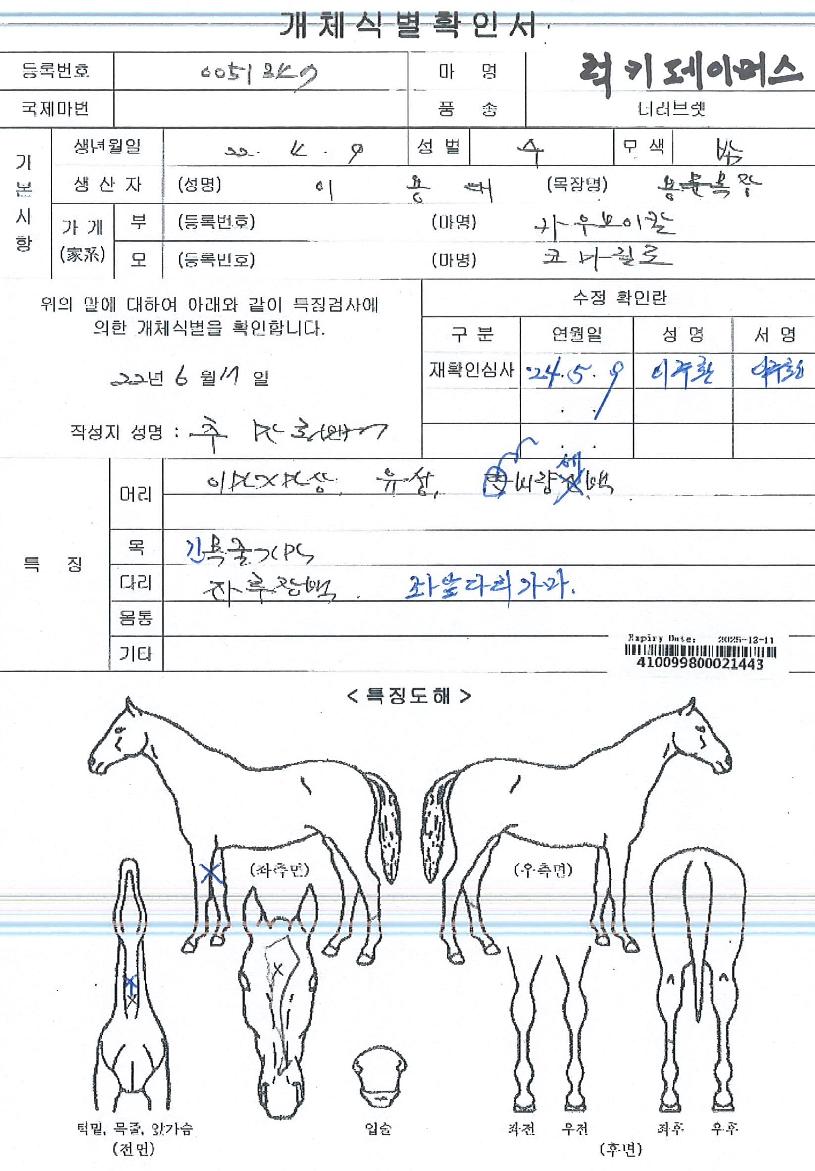 개체식별확인서
등록번호 마 명 럭키데이머스
국제마번 품 종 더러브렛
기본사항
생년월일 22. 4. 9 성 별 수 모 색 밤
생 산 자 (성명) 이 용 대 (목장명)
가 계 (家系) 부 (등록번호) (마명) 카우보이칼
모 (등록번호) (마명) 코마퀸로
위의 말에 대하여 아래와 같이 특징검사에
의한 개체식별을 확인합니다.
22년 6 월 17 일
작성자 성명 :
수정 확인란
구 분 연월일 성 명 서 명
재확인심사 '24. 5. 9 이주환 이주환
특 징
머리 유성,
목 긴목줄가마
다리 좌후장백. 좌앞다리가마.
몸통
기타
Expiry Date: 2025-12-11
410099800021443
< 특징도해 >
(좌측면) (우측면)
턱밑, 목줄, 앞가슴
(전면)
입술
좌전 우전 좌후 우후
(후면)